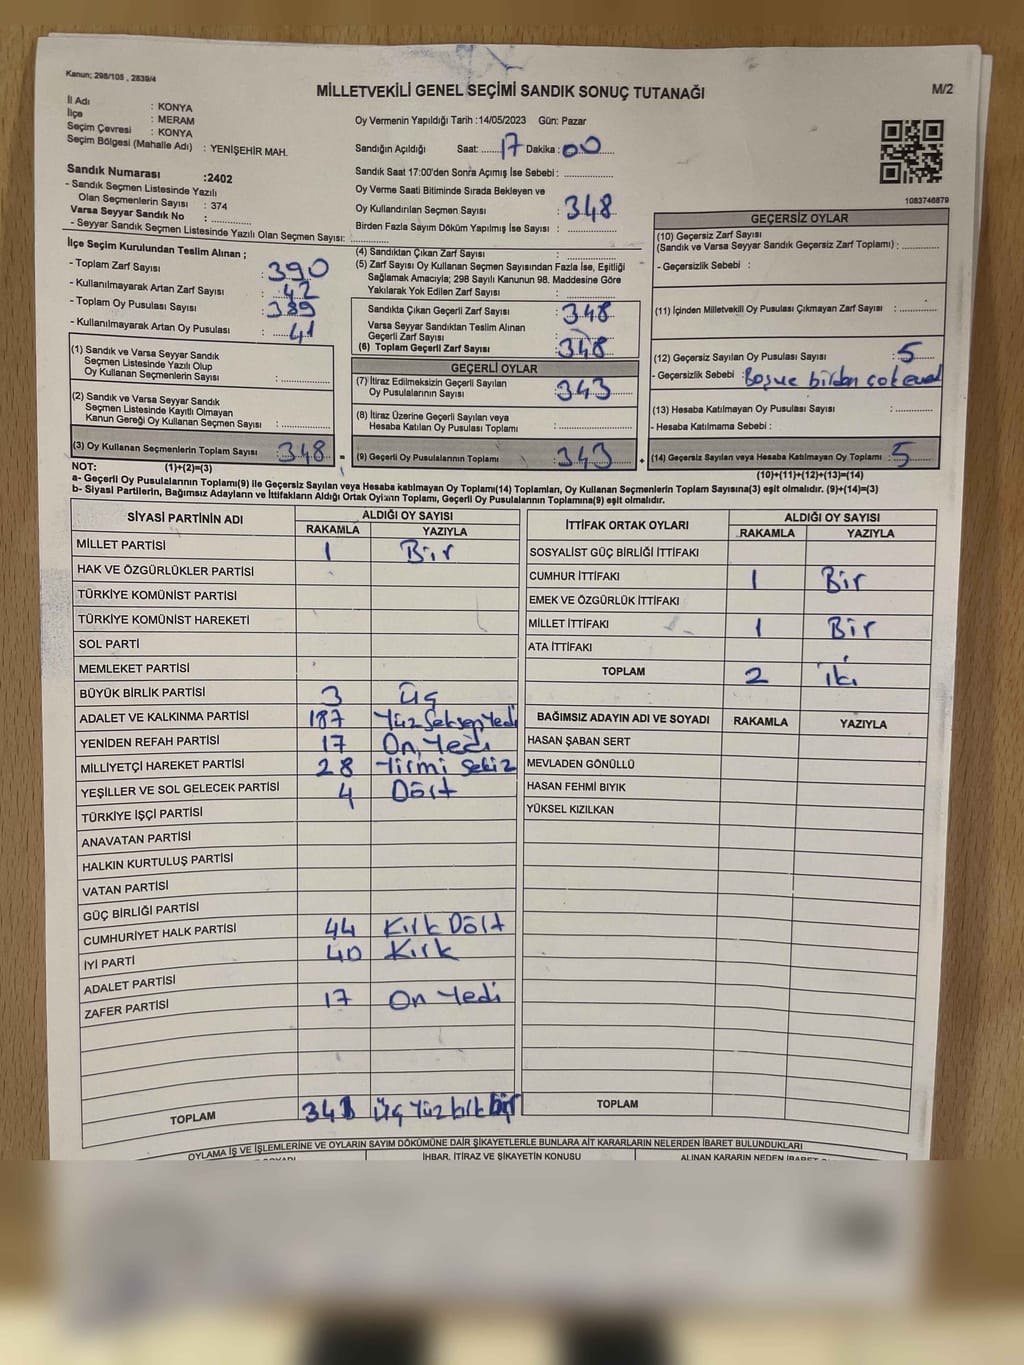 Kanun; 298/105 , 2839/4
MİLLETVEKİLİ GENEL SEÇİMİ SANDIK SONUÇ TUTANAĞI
M/2
İl Adı : KONYA
İlçe : MERAM
Seçim Çevresi : KONYA
Seçim Bölgesi (Mahalle Adı) : YENİŞEHİR MAH.
Sandık Numarası :2402
- Sandık Seçmen Listesinde Yazılı
Olan Seçmenlerin Sayısı : 374
Varsa Seyyar Sandık No : ..............
- Seyyar Sandık Seçmen Listesinde Yazılı Olan Seçmen Sayısı: ..............
Oy Vermenin Yapıldığı Tarih :14/05/2023 Gün: Pazar
Sandığın Açıldığı Saat: 17 Dakika : 00
Sandık Saat 17:00'den Sonra Açımış İse Sebebi : ..............
Oy Verme Saati Bitiminde Sırada Bekleyen ve
Oy Kullandırılan Seçmen Sayısı : 348
Birden Fazla Sayım Döküm Yapılmış İse Sayısı : ..............
1083746879
İlçe Seçim Kurulundan Teslim Alınan ;
- Toplam Zarf Sayısı : 390
- Kullanılmayarak Artan Zarf Sayısı : 42
- Toplam Oy Pusulası Sayısı : 389
- Kullanılmayarak Artan Oy Pusulası : 41
(1) Sandık ve Varsa Seyyar Sandık
Seçmen Listesinde Yazılı Olup
Oy Kullanan Seçmenlerin Sayısı : ..............
(2) Sandık ve Varsa Seyyar Sandık
Seçmen Listesinde Kayıtlı Olmayan
Kanun Gereği Oy Kullanan Seçmen Sayısı : ..............
(3) Oy Kullanan Seçmenlerin Toplam Sayısı : 348
(4) Sandıktan Çıkan Zarf Sayısı : ..............
(5) Zarf Sayısı Oy Kullanan Seçmen Sayısından Fazla İse, Eşitliği
Sağlamak Amacıyla; 298 Sayılı Kanunun 98. Maddesine Göre
Yakılarak Yok Edilen Zarf Sayısı : ..............
Sandıkta Çıkan Geçerli Zarf Sayısı : 348
Varsa Seyyar Sandıktan Teslim Alınan
Geçerli Zarf Sayısı :
(6) Toplam Geçerli Zarf Sayısı : 348
GEÇERLİ OYLAR
(7) İtiraz Edilmeksizin Geçerli Sayılan
Oy Pusulalarının Sayısı : 343
(8) İtiraz Üzerine Geçerli Sayılan veya
Hesaba Katılan Oy Pusulası Toplamı : ..............
(9) Geçerli Oy Pusulalarının Toplamı : 343
GEÇERSİZ OYLAR
(10) Geçersiz Zarf Sayısı
(Sandık ve Varsa Seyyar Sandık Geçersiz Zarf Toplamı) : ..............
- Geçersizlik Sebebi :
(11) İçinden Milletvekili Oy Pusulası Çıkmayan Zarf Sayısı : ..............
(12) Geçersiz Sayılan Oy Pusulası Sayısı : 5
- Geçersizlik Sebebi : birden çok
(13) Hesaba Katılmayan Oy Pusulası Sayısı : ..............
- Hesaba Katılmama Sebebi :
(14) Geçersiz Sayılan veya Hesaba Katılmayan Oy Toplamı : 5
NOT: (1)+(2)=(3)
(10)+(11)+(12)+(13)=(14)
a- Geçerli Oy Pusulalarının Toplamı(9) ile Geçersiz Sayılan veya Hesaba katılmayan Oy Toplamı(14) Toplamları, Oy Kullanan Seçmenlerin Toplam Sayısına(3) eşit olmalıdır. (9)+(14)=(3)
b- Siyasi Partilerin, Bağımsız Adayların ve İttifakların Aldığı Ortak Oyların Toplamı, Geçerli Oy Pusulalarının Toplamına(9) eşit olmalıdır.
SİYASİ PARTİNİN ADI ALDIĞI OY SAYISI
RAKAMLA YAZIYLA
MİLLET PARTİSİ 1 Bir
HAK VE ÖZGÜRLÜKLER PARTİSİ
TÜRKİYE KOMÜNİST PARTİSİ
TÜRKİYE KOMÜNİST HAREKETİ
SOL PARTİ
MEMLEKET PARTİSİ
BÜYÜK BİRLİK PARTİSİ 3 Üç
ADALET VE KALKINMA PARTİSİ 187 Yüz Seksen Yedi
YENİDEN REFAH PARTİSİ 17 On Yedi
MİLLİYETÇİ HAREKET PARTİSİ 28 Yirmi Sekiz
YEŞİLLER VE SOL GELECEK PARTİSİ 4 Dört
TÜRKİYE İŞÇİ PARTİSİ
ANAVATAN PARTİSİ
HALKIN KURTULUŞ PARTİSİ
VATAN PARTİSİ
GÜÇ BİRLİĞİ PARTİSİ
CUMHURİYET HALK PARTİSİ 44 Kırk Dört
İYİ PARTİ 40 Kırk
ADALET PARTİSİ
ZAFER PARTİSİ 17 On Yedi
TOPLAM 341 Üç Yüz kırk bir
İTTİFAK ORTAK OYLARI ALDIĞI OY SAYISI
RAKAMLA YAZIYLA
SOSYALİST GÜÇ BİRLİĞİ İTTİFAKI
CUMHUR İTTİFAKI 1 Bir
EMEK VE ÖZGÜRLÜK İTTİFAKI
MİLLET İTTİFAKI 1 Bir
ATA İTTİFAKI
TOPLAM 2 iki
BAĞIMSIZ ADAYIN ADI VE SOYADI RAKAMLA YAZIYLA
HASAN ŞABAN SERT
MEVLADEN GÖNÜLLÜ
HASAN FEHMİ BIYIK
YÜKSEL KIZILKAN
TOPLAM
OYLAMA İŞ VE İŞLEMLERİNE VE OYLARIN SAYIM DÖKÜMÜNE DAİR ŞİKAYETLERLE BUNLARA AİT KARARLARIN NELERDEN İBARET BULUNDUKLARI
İHBAR, İTİRAZ VE ŞİKAYETİN KONUSU
ALINAN KARARIN NEDEN